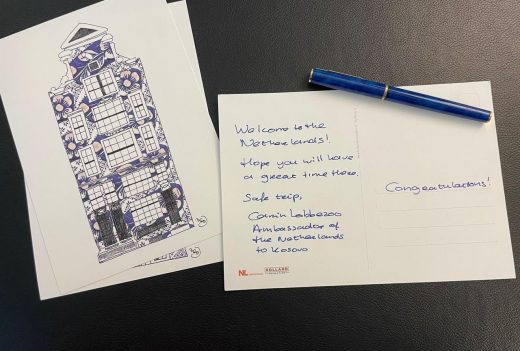 Welcome to the
Netherlands!
Hope you will have
a great time there.
Safe trip,
Carin Lobbezoo
Ambassador of
the Netherlands
to Kosovo
Congratulations!
NL
HOLLAND